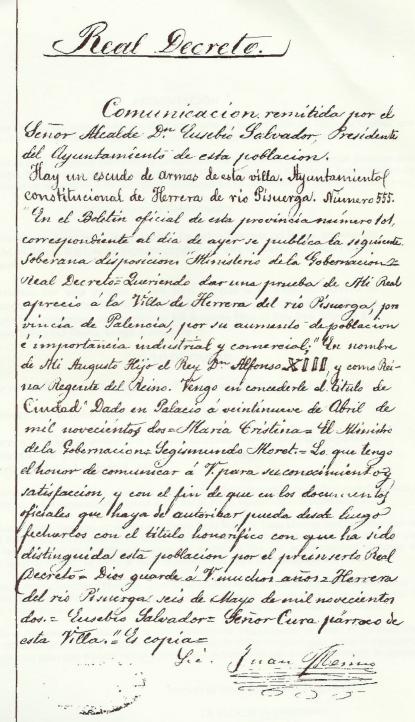 Real Decreto.
Comunicacion remitida por el
Señor Alcalde Dn Eusebio Salvador, Presidente
del Ayuntamiento de esta poblacion.
Hay un escudo de armas de esta villa. Ayuntamiento
constitucional de Herrera de rio Pisuerga. Numero 555.
"En el Boletin oficial de esta provincia numero 101,
correspondiente al dia de ayer se publica la siguiente
soberana disposicion: "Ministerio de la Gobernacion=
Real Decreto= Queriendo dar una prueba de Mi Real
aprecio á la Villa de Herrera del rio Pisuerga, pro
vincia de Palencia, por su aumento de poblacion
é importancia industrial y comercial;" En nombre
de Mi Augusto Hijo el Rey Dn Alfonso XIII, y como Rei-
na Regente del Reino. Vengo en concederle el titulo de
Ciudad" Dado en Palacio á veintinueve de Abril de
mil novecientos dos= Maria Cristina= El Ministro
de la Gobernacion= Segismundo Moret.= Lo que tengo
el honor de comunicar á V. para su conocimiento y
satisfaccion, y con el fin de que en los documentos
oficiales que haya de autorizar pueda desde luego
fecharlos con el titulo honorifico con que ha sido
distinguida esta poblacion por el preinserto Real
Decreto= Dios guarde á V. muchos años= Herrera
del rio Pisuerga seis de Mayo de mil novecientos
dos.= Eusebio Salvador= Señor Cura párroco de
esta Villa." Es copia=
Lic. Juan Merino